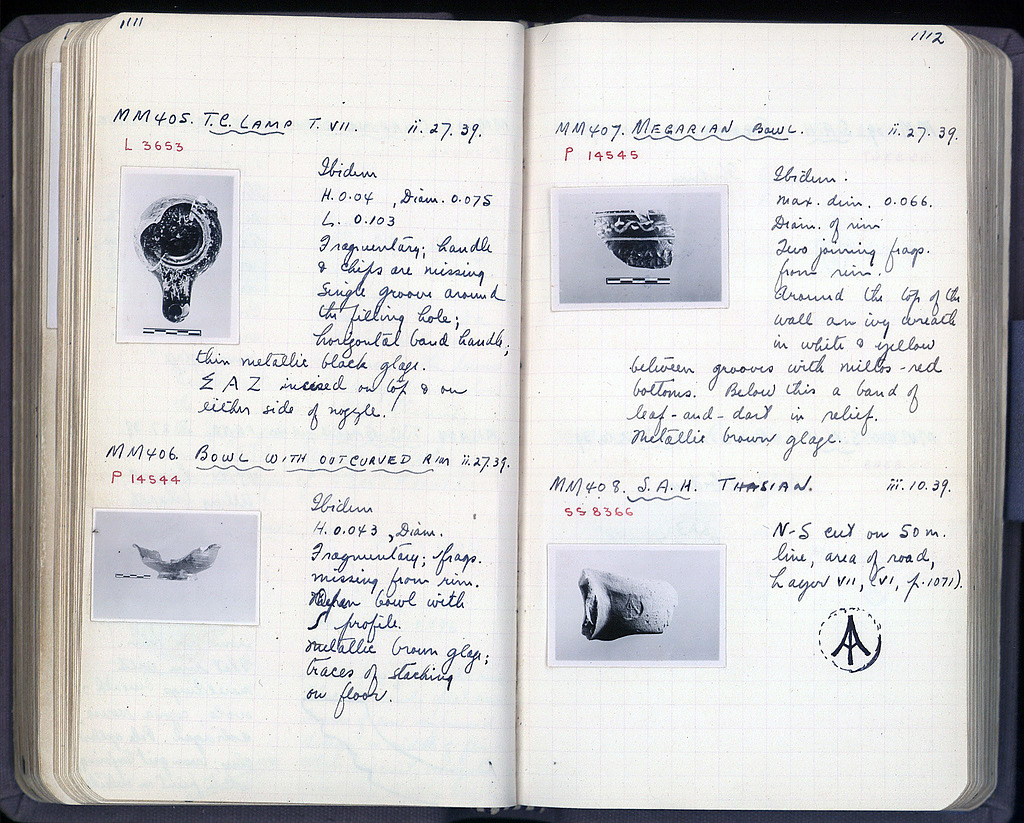 1111
MM405. T.C. LAMP T. VII. ii.27.39.
L 3653
Ibidem
H. 0.04 , Diam. 0.075
L. 0.103
Fragmentary; handle
& chips are missing
Single groove around
the filling hole;
horizontal band handle;
thin metallic black glaze.
Σ A Z incised on top & on
either side of nozzle.
MM406. BOWL WITH OUTCURVED RIM ii.27.39.
P 14544
Ibidem
H. 0.043 , Diam.
Fragmentary; frags.
missing from rim.
bowl with
S profile.
Metallic brown glaze;
traces of stacking
on floor.
1112
MM407. MEGARIAN BOWL. ii.27.39.
P 14545
Ibidem.
Max. dim. 0.066.
Diam. of rim
Two joining frags.
from rim.
Around the top of the
wall an ivy wreath
in white & yellow
between grooves with miltos-red
bottoms. Below this a band of
leaf-and-dart in relief.
Metallic brown glaze.
MM408. S.A.H. THASIAN. iii.10.39.
SS 8366
N-S cut on 50 m.
line, area of road,
Layer VII, (VI, p. 1071).